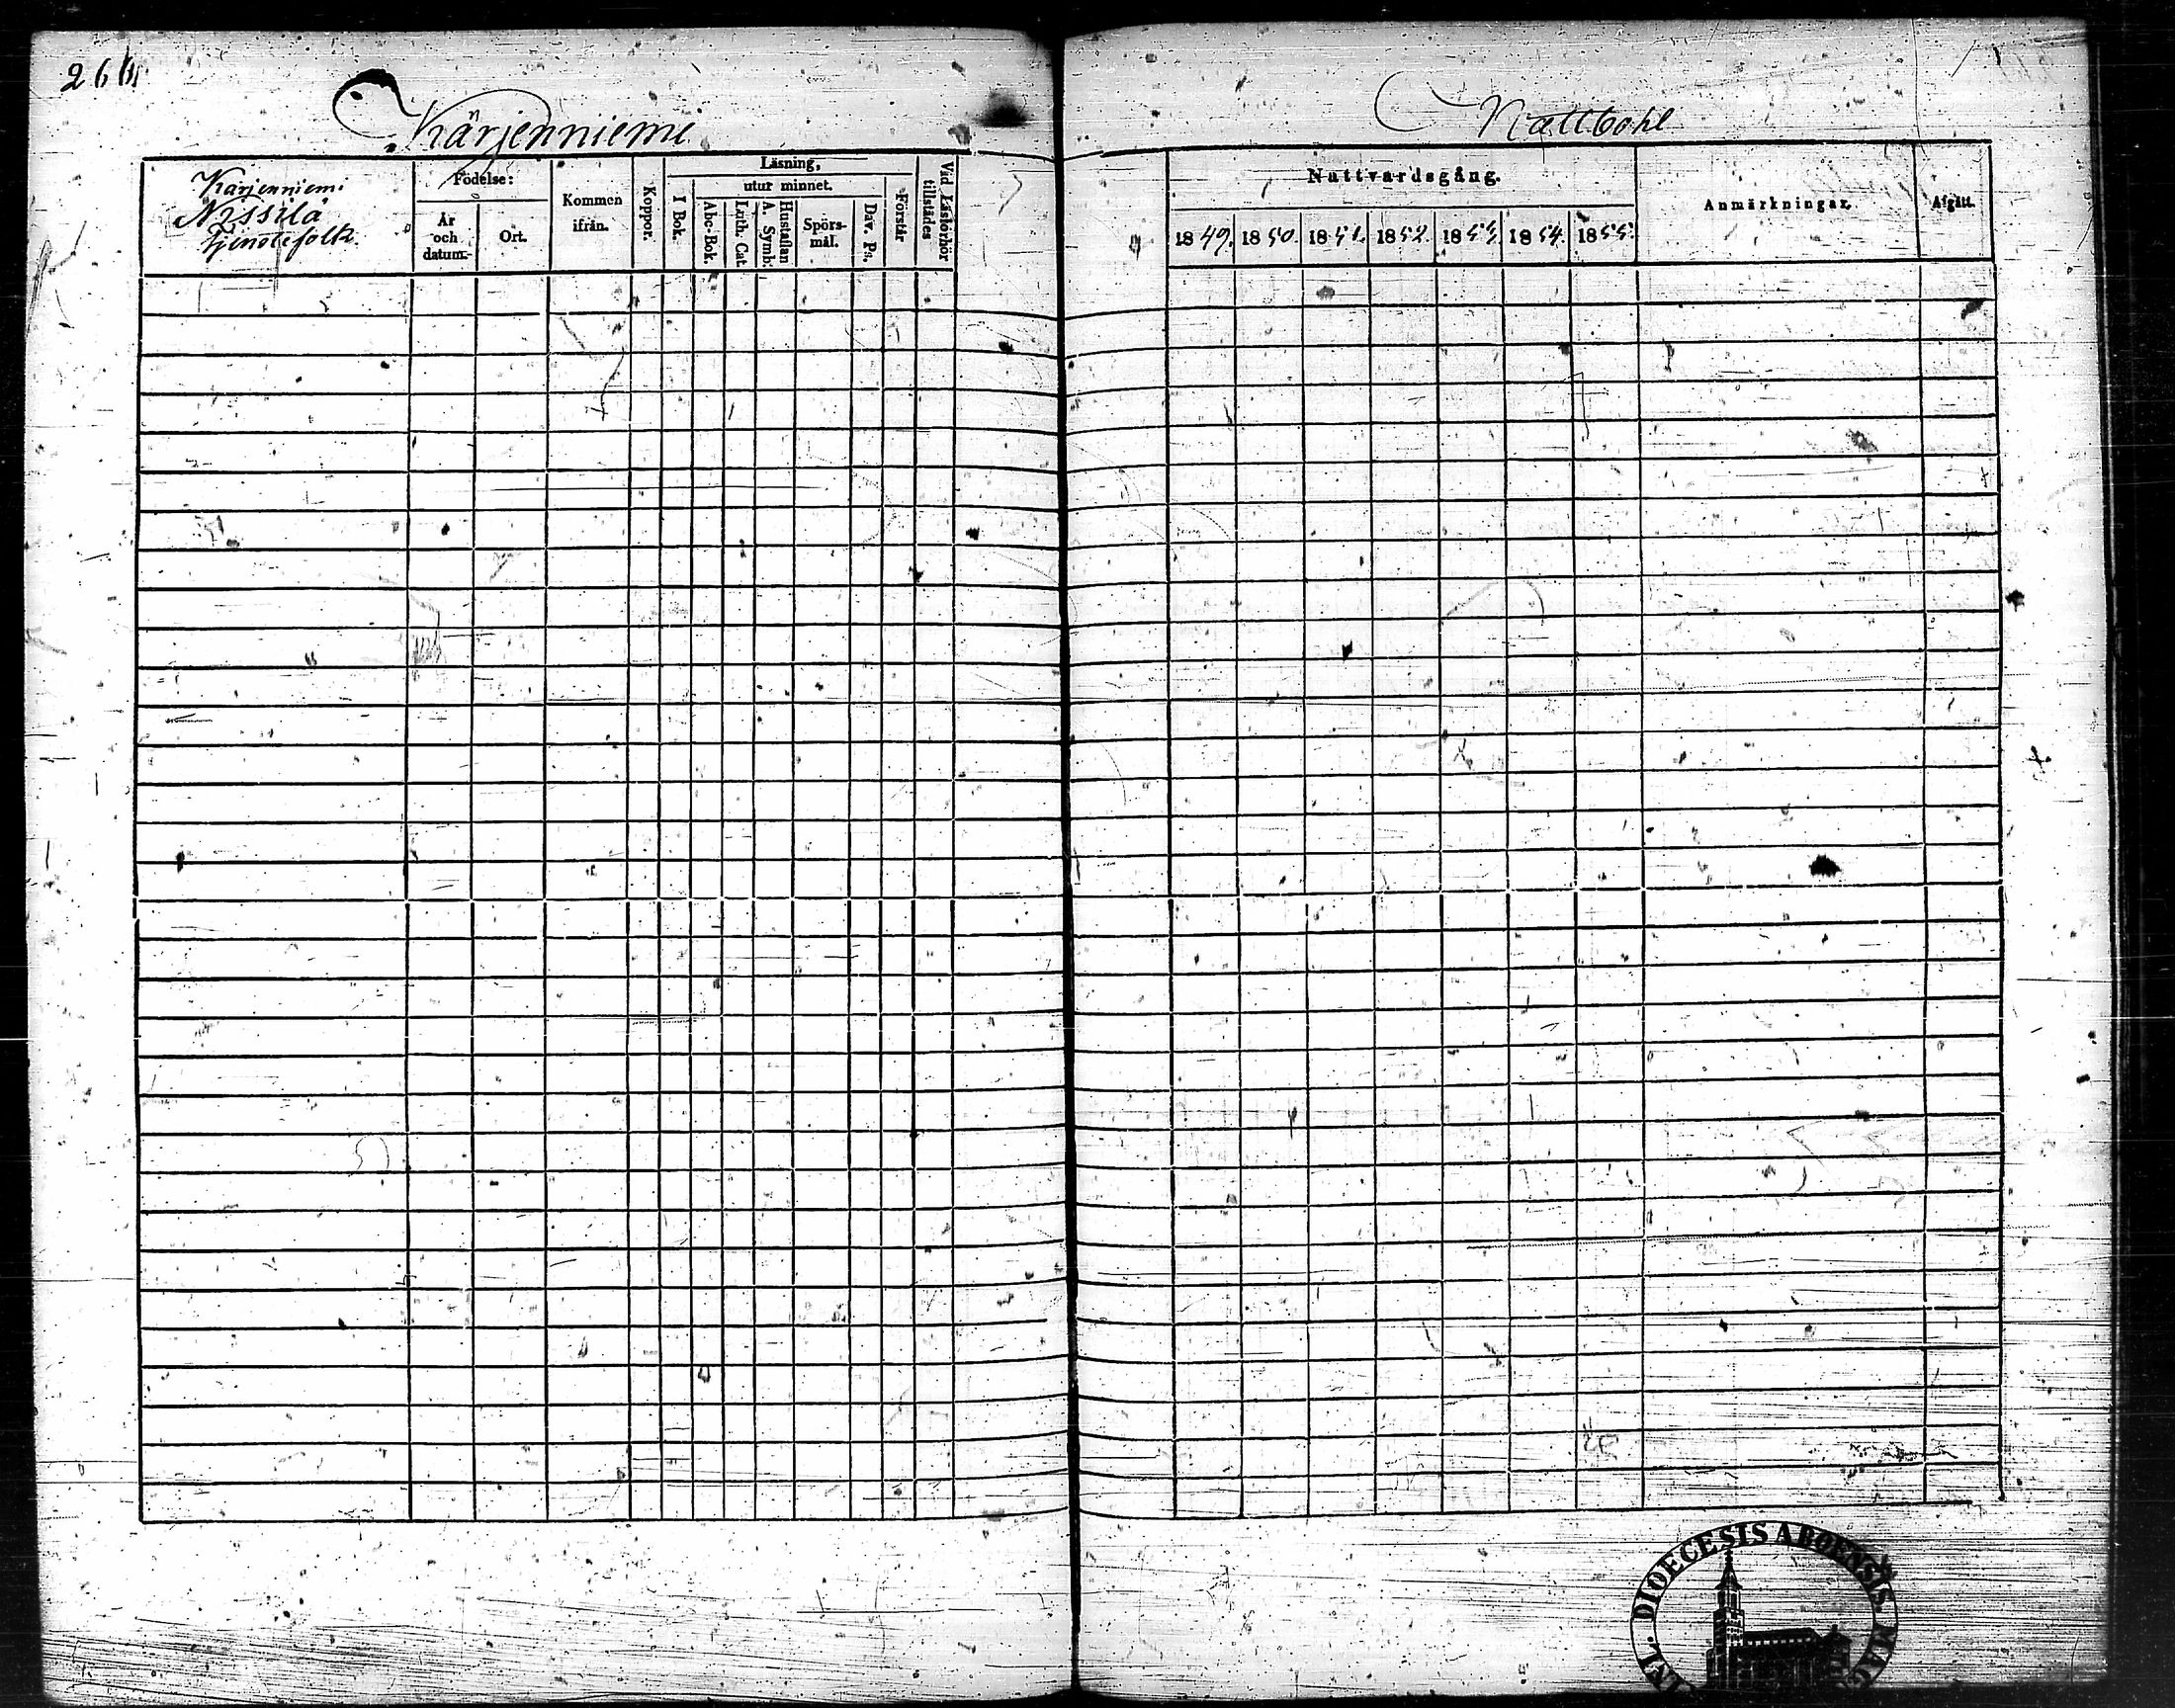 Kärjenniemi
Nattbohl
Kärjenniemi
Nissilä
Tjenstefolk.
Födelse:
År och datum.
Ort.
Kommen ifrån.
Koppor.
Läsning,
I Bok.
utur minnet.
Abc-Bok.
Luth. Cat.
Hustaflan A. Symb:
Spörs-mål.
Dav. Ps.
Förstår
Vid Läsförhör tillstädes
Nattvardsgång.
1849. 1850. 1851. 1852. 1853. 1854. 1855.
Anmärkningar.
Afgått.
DIOECESIS ABOENSIS